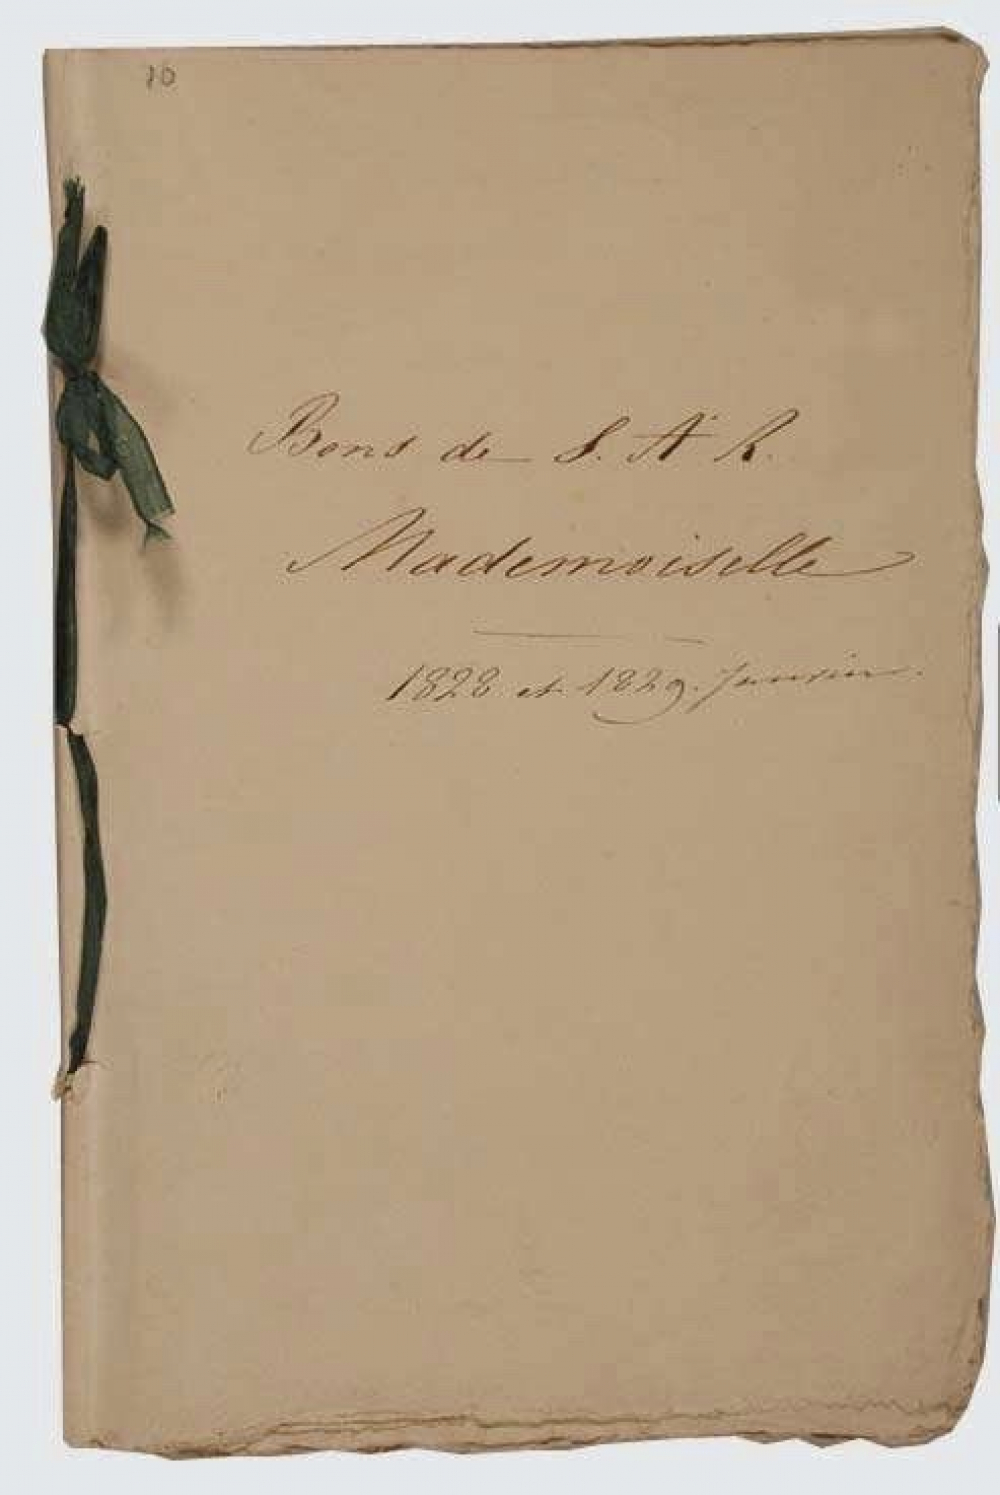 10
Bons de S. A. R.
Mademoiselle
1828 et 1829. Janvier.